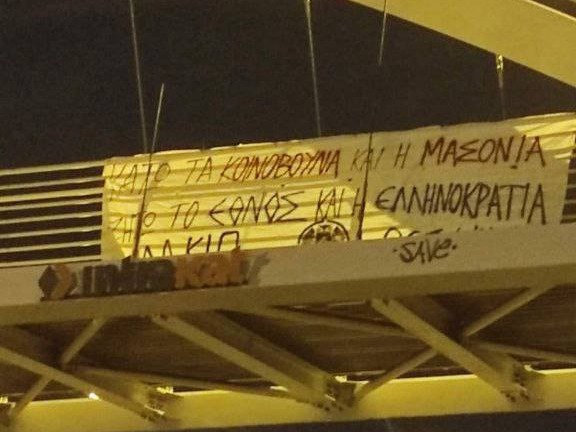 ΚΑΤΩ ΤΑ ΚΟΙΝΟΒΟΥΛΙΑ ΚΑΙ Η ΜΑΣΟΝΙΑ
ΖΗΤΩ ΤΟ ΕΘΝΟΣ ΚΑΙ Η ΕΛΛΗΝΟΚΡΑΤΙΑ
SAVE
intrakat